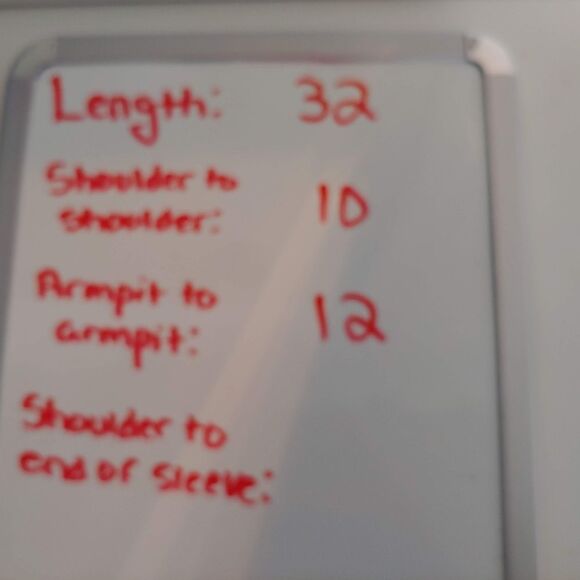 Length: 32
Shoulder to
shoulder: 10
Armpit to
armpit: 12
Shoulder to
end of sleeve: